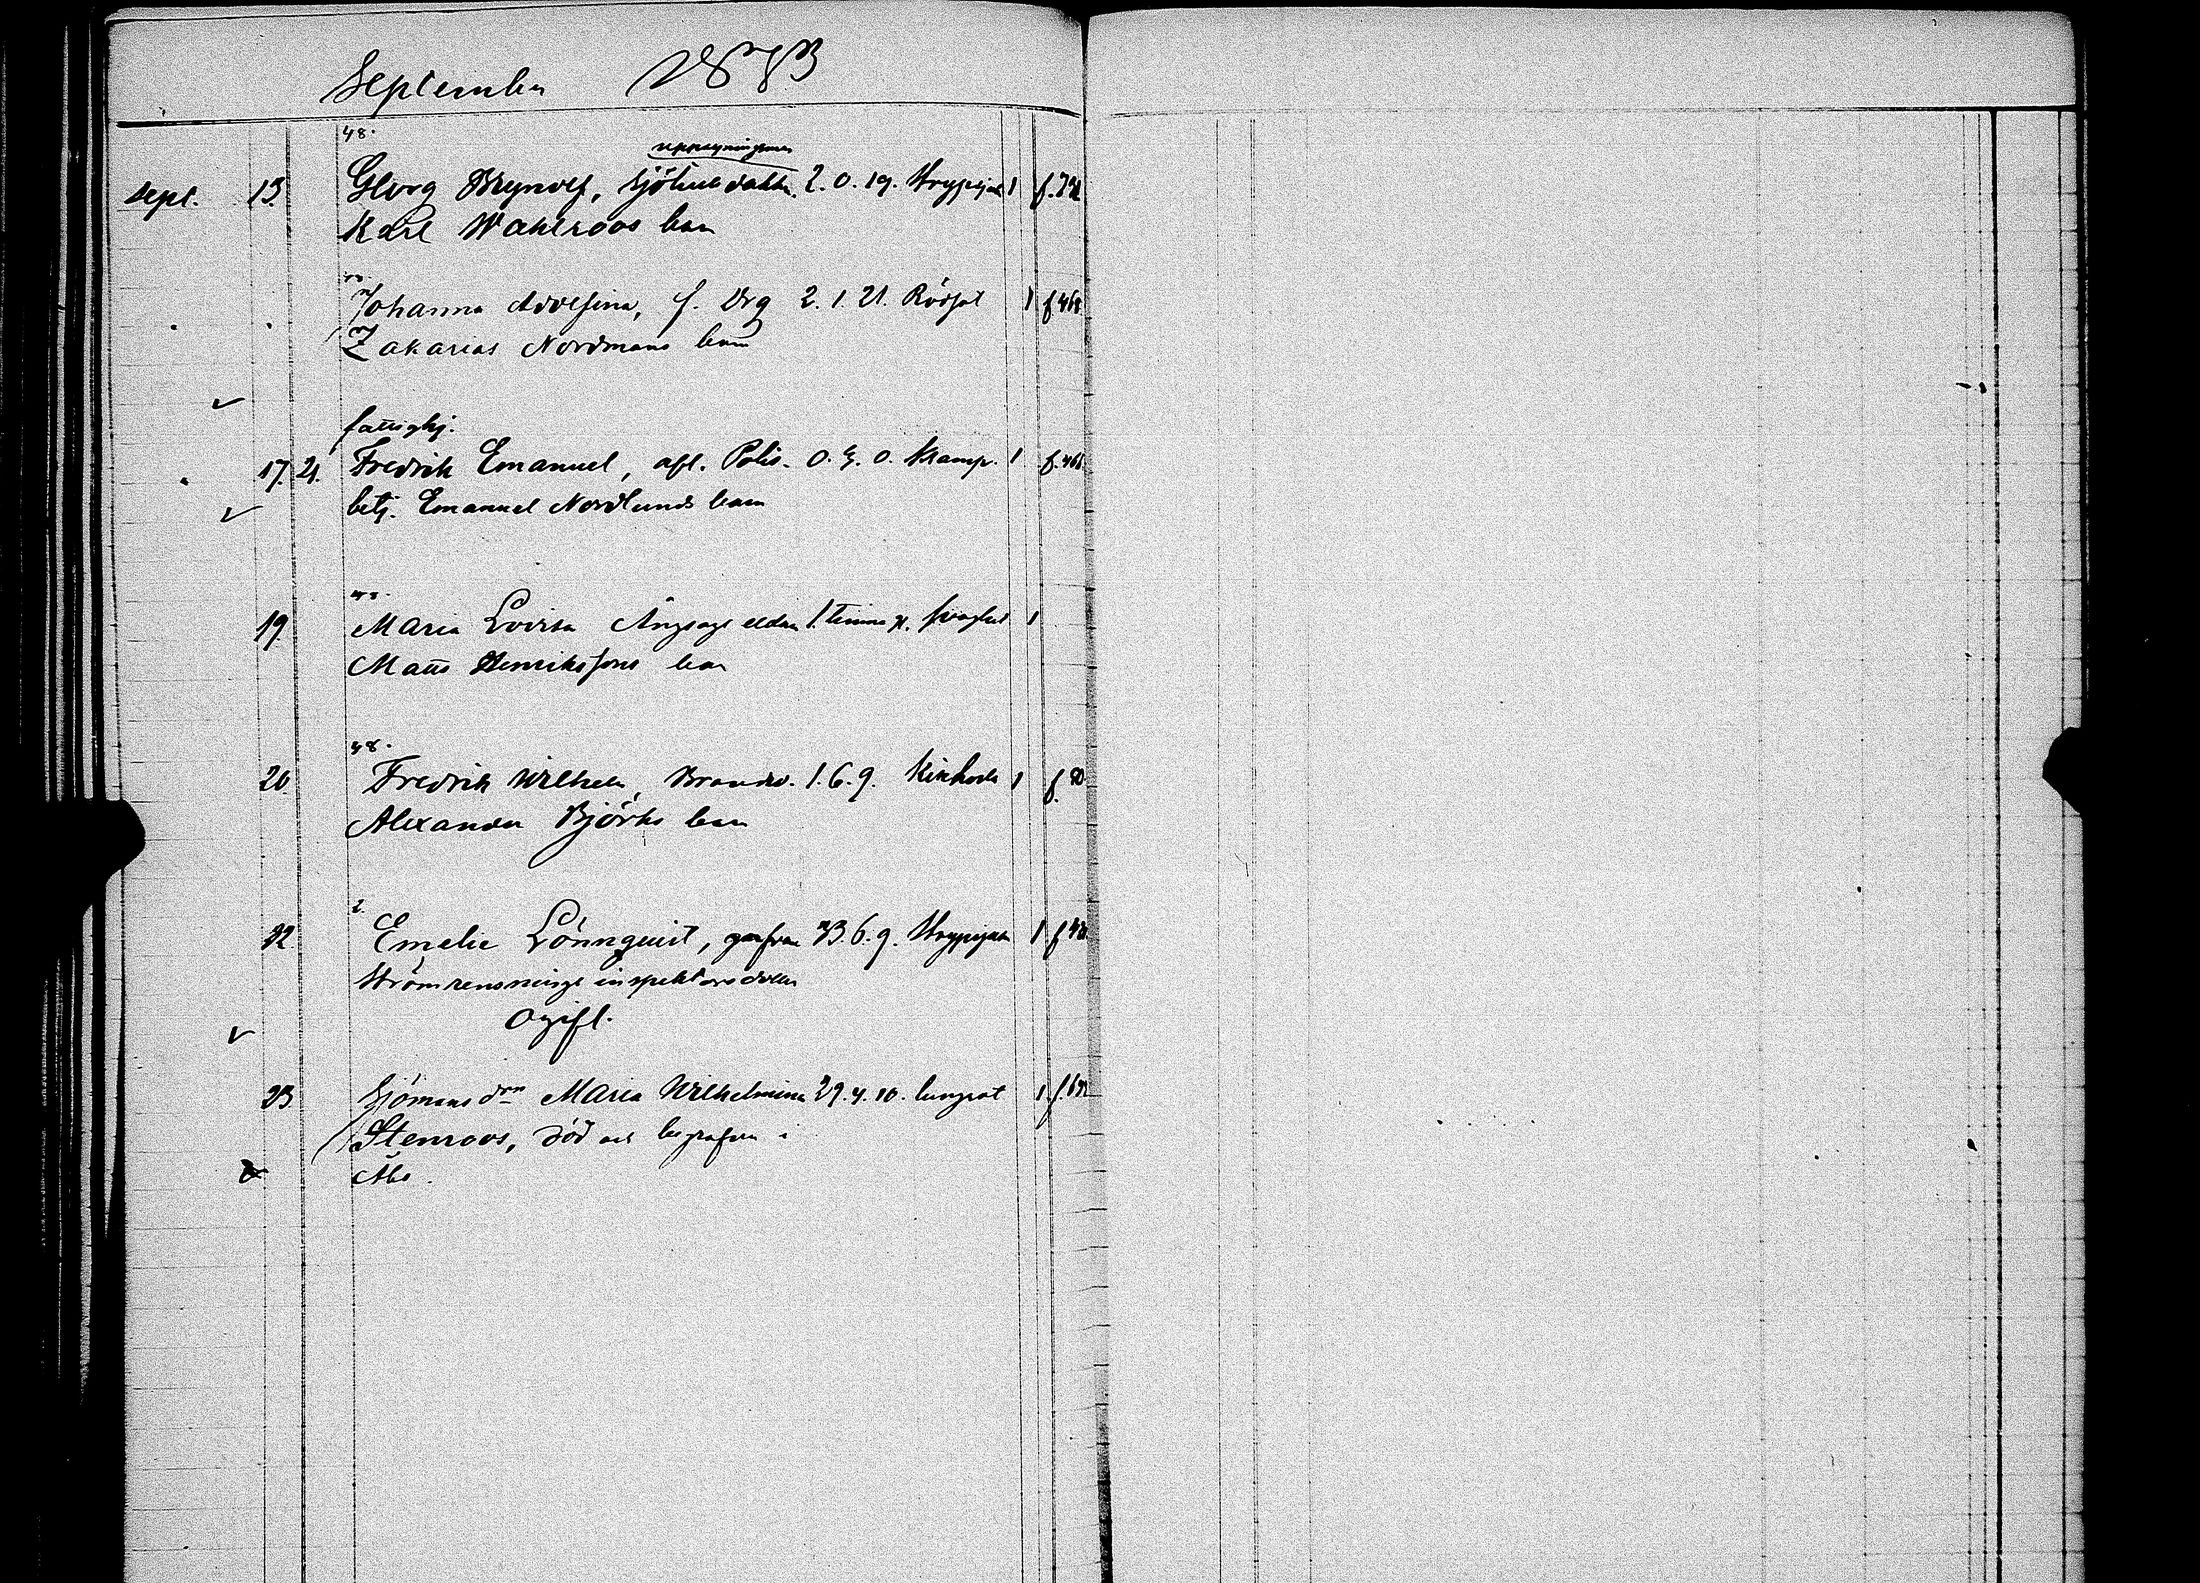 September 1873
48.
Sept. 13. Georg Brynolf, 2. 0. 19. Strypsjuk 1 f. 791
Karl Wahlroos barn
Johanna Adolfina, f. Drg 2. 1. 21. Rödsot 1 f. 468
Zakarias Nordmans barn
fattighj.
17. 21. Fredrik Emanuel, afl. Polis- 0. 3. 0. Kramp. 1 f. 468
betj. Emanuel Nordlunds barn
19. Maria Lovisa Ångsågs eldaren 1. timma g. svaghet 1
Matts Henrikssons barn
48.
20. Fredrik Wilhelm, Brandv. 1. 6. 9. Kikhosta 1 f. 80
Alexander Björks barn
2.
22. Emelie Lönnquist, 23. 6. 9. Strypsjuka 1 f.
Strömrensnings inspektorsdotter
Ogift.
23. Sjömans drn Maria Wilhelmina 29. 4. 10. lungsot 1. f.
Stenroos, död och begrafven i
Åbo.